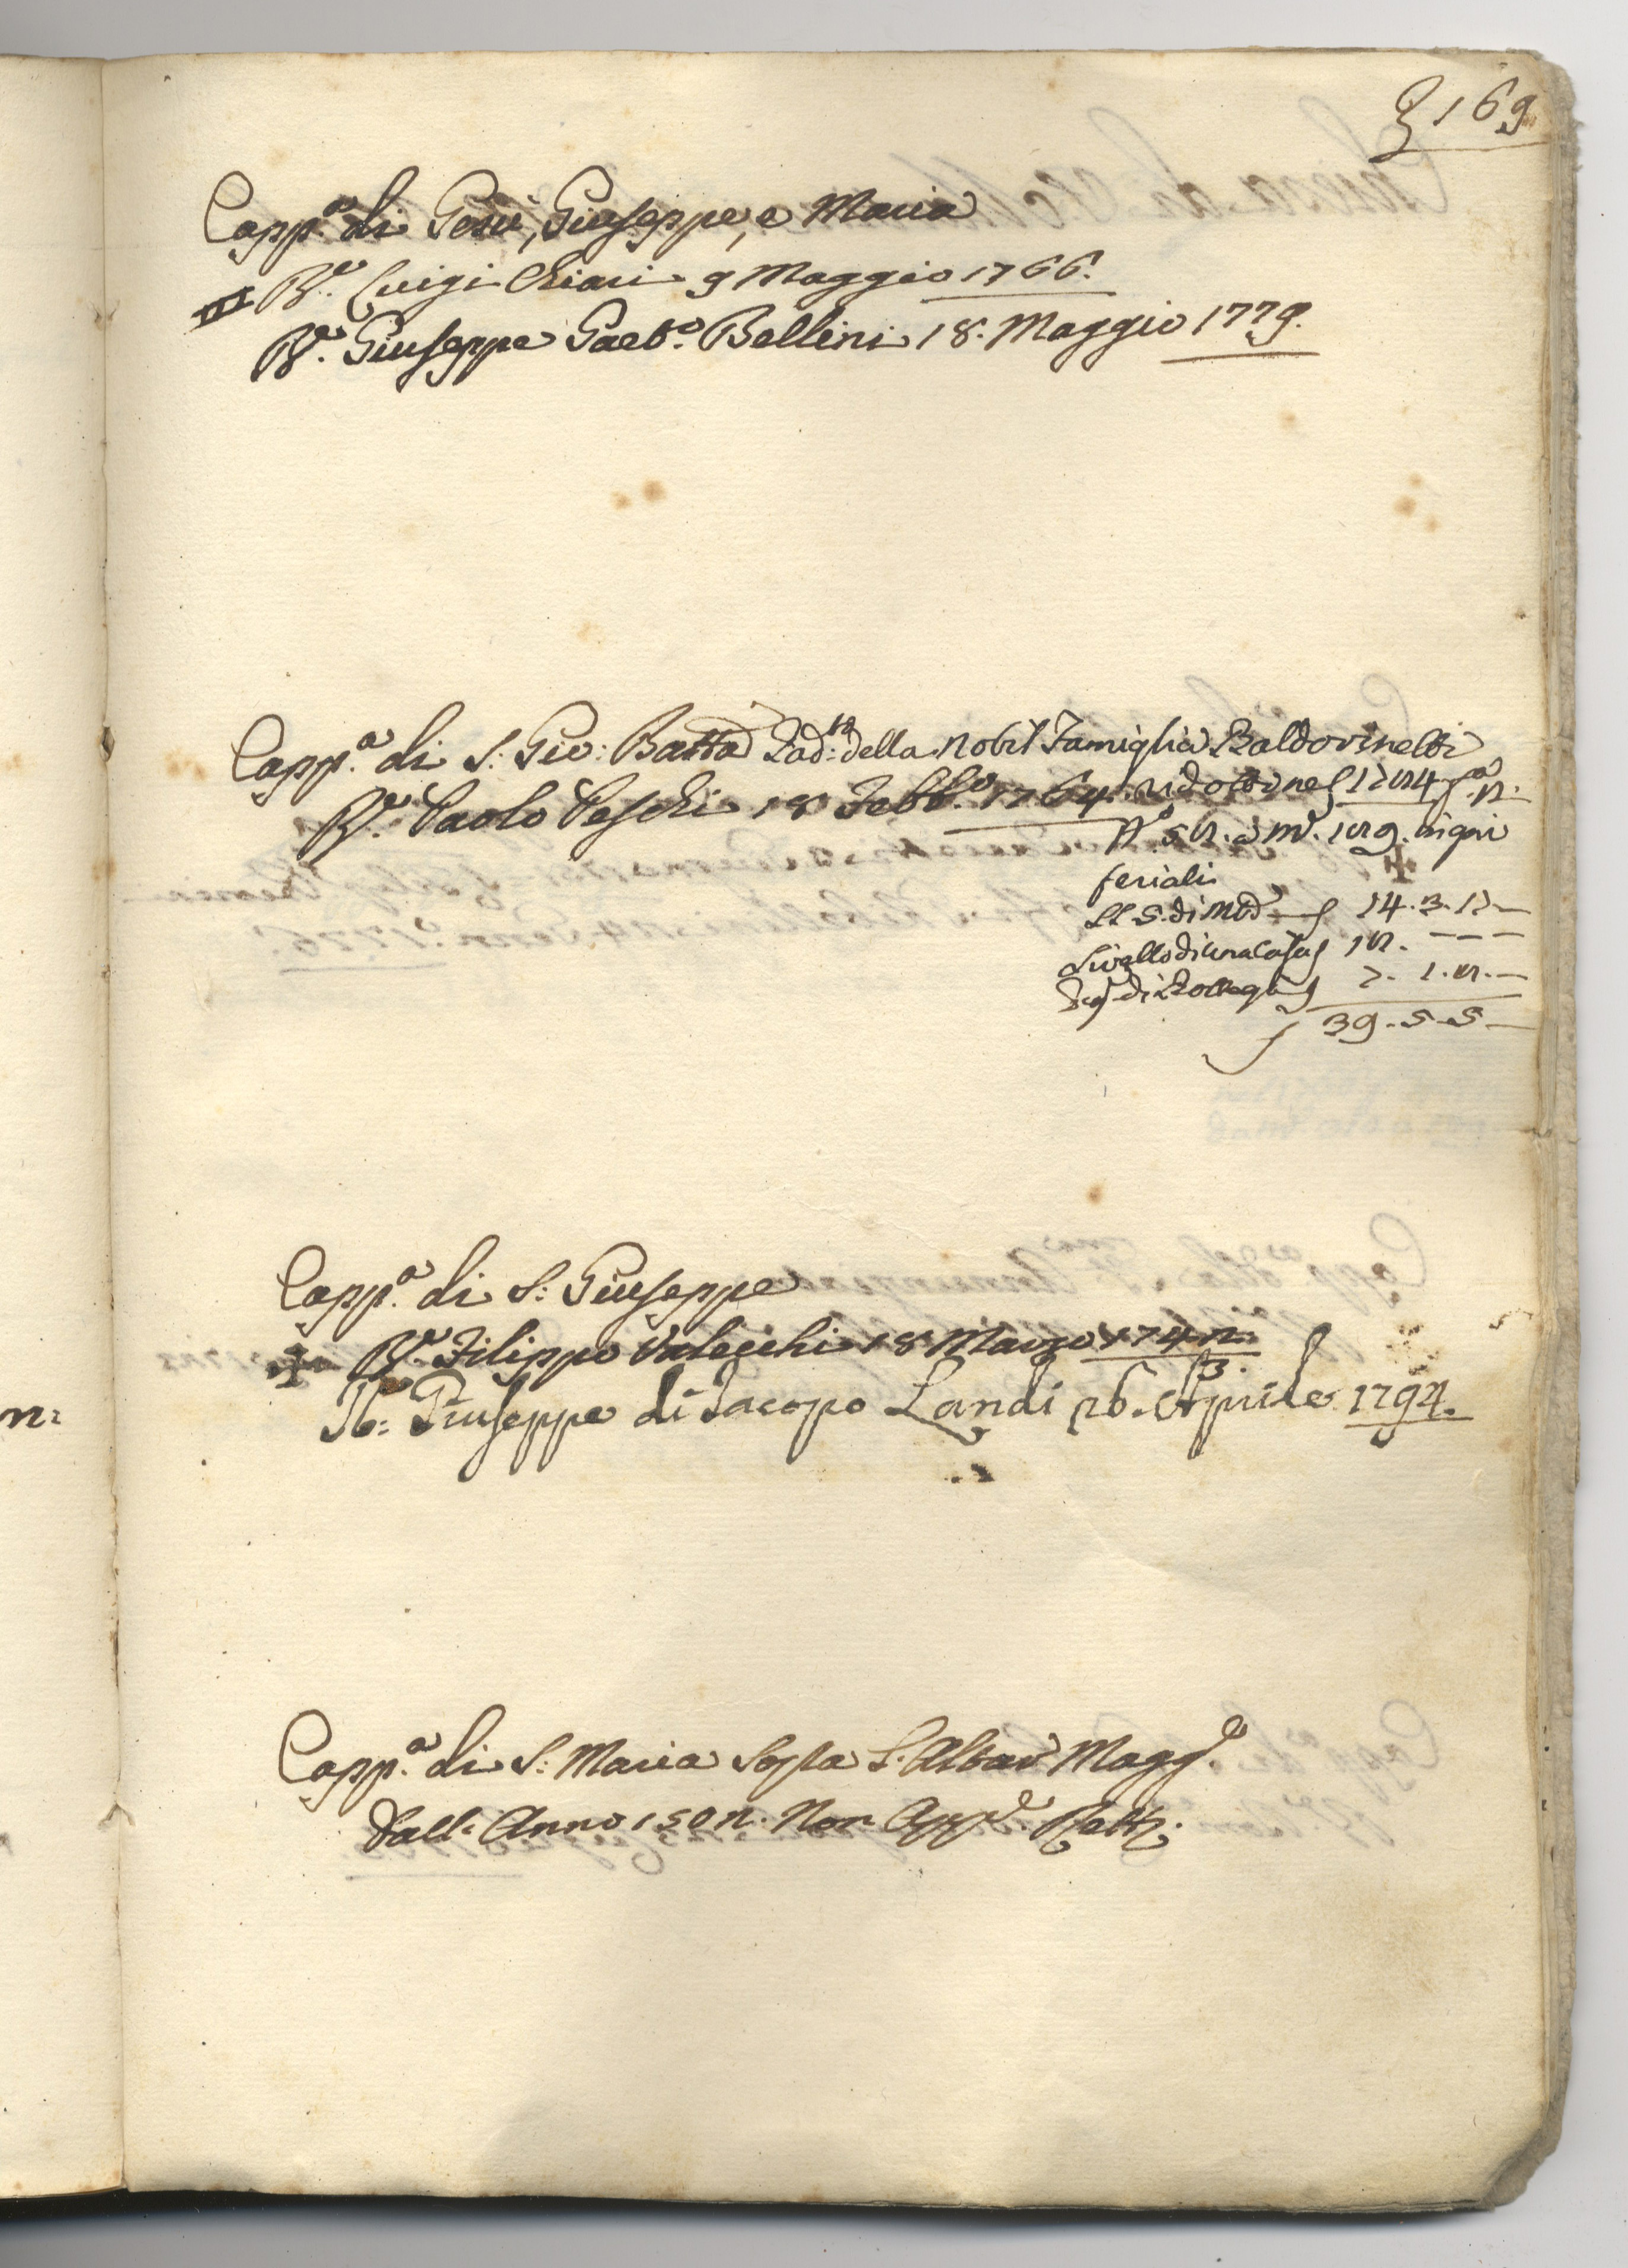 169
Capp.a di Gesù, Giuseppe, e Maria
R.e Luigi Chiari 9 Maggio 1766.
R.e Giuseppe Gaet.o Bellini 18. Maggio 1779.
Capp.a di S: Gio: Batta Pad:to della Nobil Famiglia Baldovinetti
R.e Paolo Peschi 18 Febb.o 1764. ridotti nel
feriali
14.3.17
Livello di una casa 18. - - -
39.5.5
Capp.a di S: Giuseppe
R.e Filippo Valecchi 18 Marzo 1742.
3.
Giuseppe di Iacopo Landi 26. Aprile 1794.
Capp.a di S: Maria Sopra L'Altar Magg.e
Dall: Anno 1502. Non App.e Rett:
n: